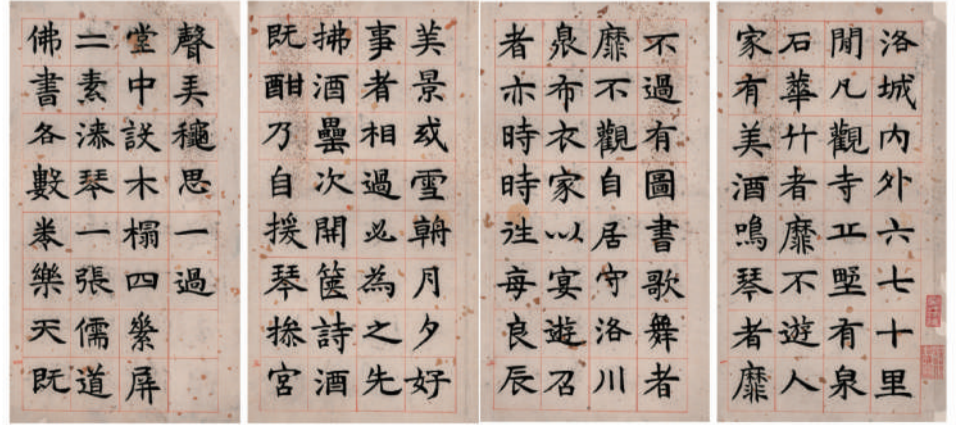 洛城内外六七十里
閒凡觀寺丘墅有泉
石華竹者靡不遊人
家有美酒鳴琴者靡
不過有圖書歌舞者
靡不觀自居守洛川
泉布衣家以宴遊召
者亦時時往每良辰
美景或雪朝月夕好
事者相過必為之先
拂酒罍次開篋詩酒
既酣乃自援琴操宮
聲弄穐思一過
堂中設木榻四素屏
二素漆琴一張儒道
佛書各數卷樂天既